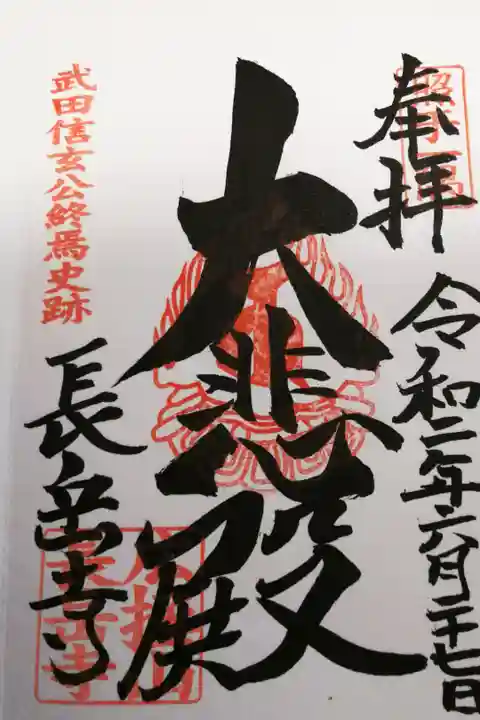 奉拝
令和二年六月二十七日
大悲殿
武田信玄公終焉史跡
長岳寺
広拯山
長岳寺